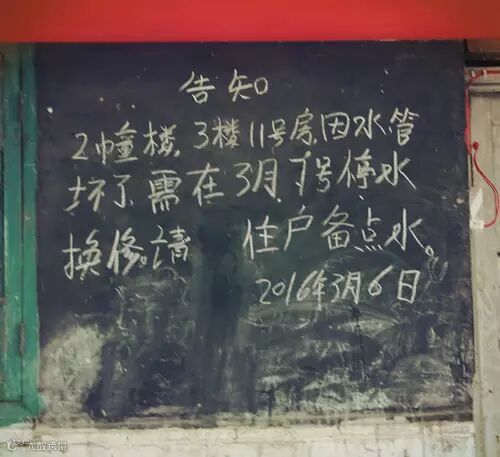 告知
2幢楼.3楼11号房因水管
坏了需在3月7号停水
换修。请 住户备点水。
2016年3月6日
大数跨境